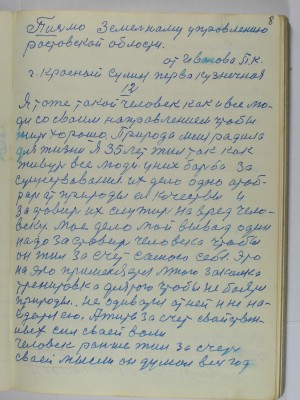 8
Письмо Земельному управлению
ростовской области.
от Иванова П.К.
г. Красный Сулин перво кузнечная
12
Я тоте такой человек как и все лю-
ди со своим направлением чтобы
жит хорошо. Природа мня радила
для жизни Я 35 лет жил так как
живут все люди у них барба за
существование их дело одно
природы ее качествы и
за довир их служит на вред чело-
веку. Мое дело мой вывад один
надо за человека чтобы
он жил за счет самого себя. Это
на это пришлась для этого закалка
тренировка для того чтобы не баятся
природы. не от ней и не на-
ею. А жить за счет свайствен-
ных сил сваей воли
Человек раньше жил за счет
сваей мысли он думал вел год